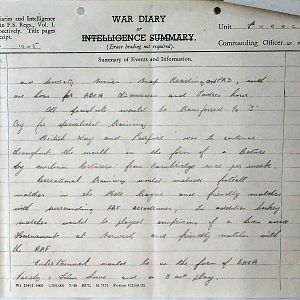 diaries and Intelligence
in F.S. Regs., Vol. I.
respectively. Title pages
script.
WAR DIARY
OF
INTELLIGENCE SUMMARY.
(Erase heading not required).
Unit
Commanding Officer
Summary of Events and Information.
and Map Reading, and P.A.D., with
one hour for ABCA discussion and hour
All would be transferred to "J"
Coy for specialised training.
British Way and Purpose was to continue
throughout the month in the form of a lecture
by civilian lecturers from Cambridge once per week.
Recreational training would include football
matches in the League and friendly matches
with surrounding RAF aerodromes. In addition hockey
matches would be played comprising of a seven aside
tournament at Norwich and friendly matches with
the RAF.
Entertainment would be in the form of ENSA
Variety, Film Shows and a 3 act play.